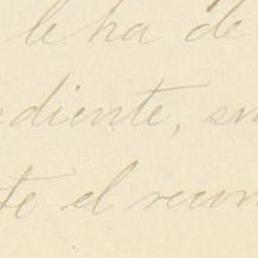 le ha de
diente, su
te el recon